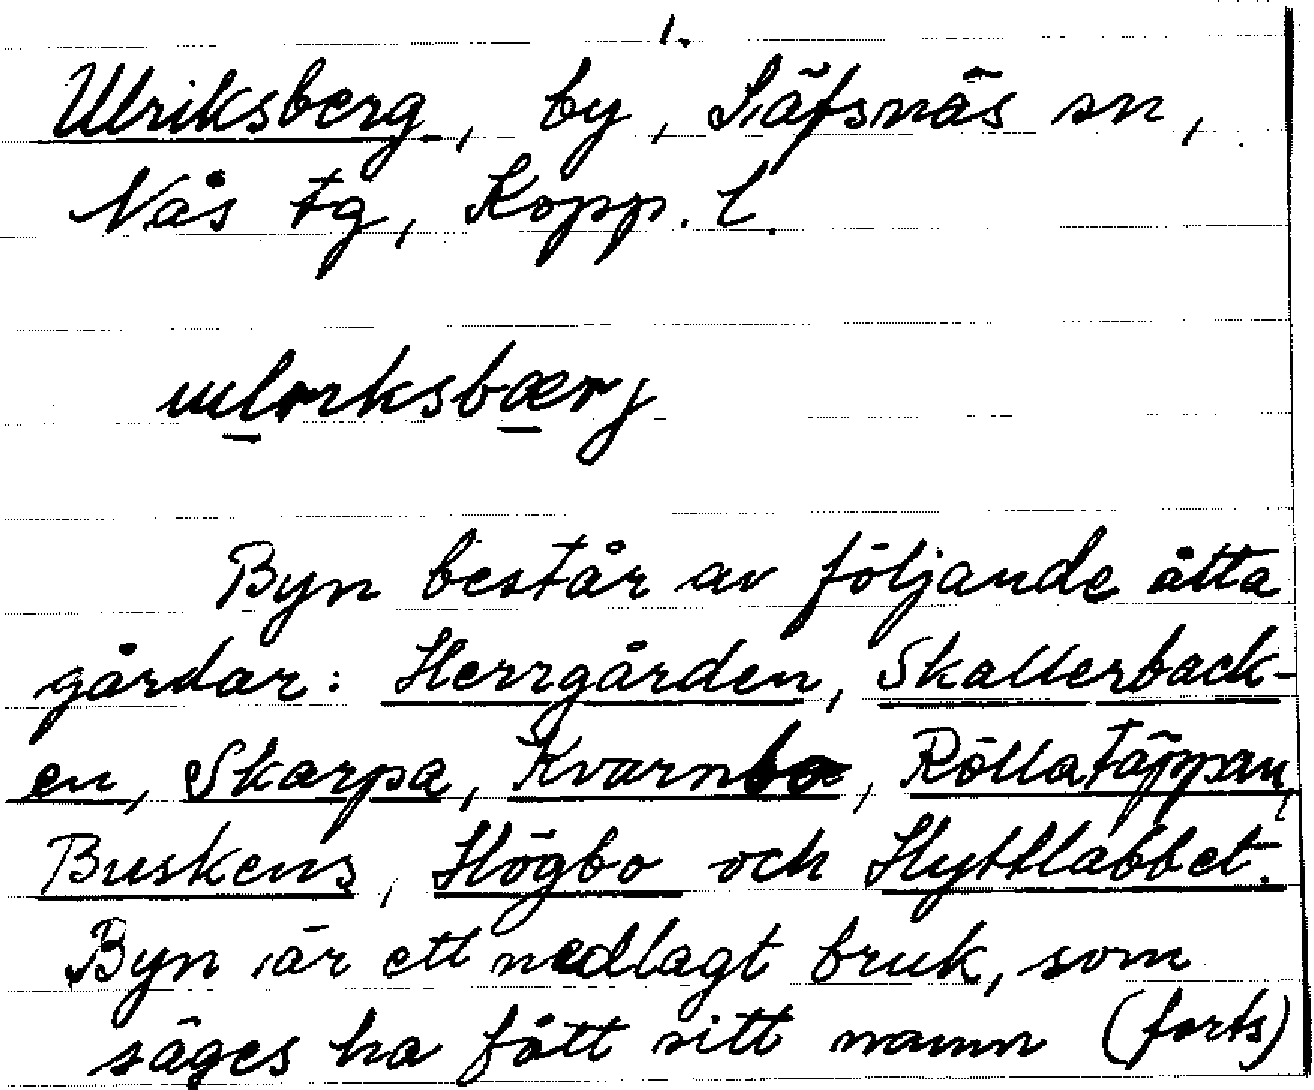 1.
Ulriksberg, by, Säfsnäs sn,
Nås tg, Kopp. l.
ulrksbærj
Byn består av följande åtta
gårdar: Herrgården, Skallerback-
en, Skarpa, Kvarnbo, Röllatäppan,
Buskens, Högbo och Hyttlabbet.
Byn är ett nedlagt bruk, som
säges ha fått sitt namn (forts)